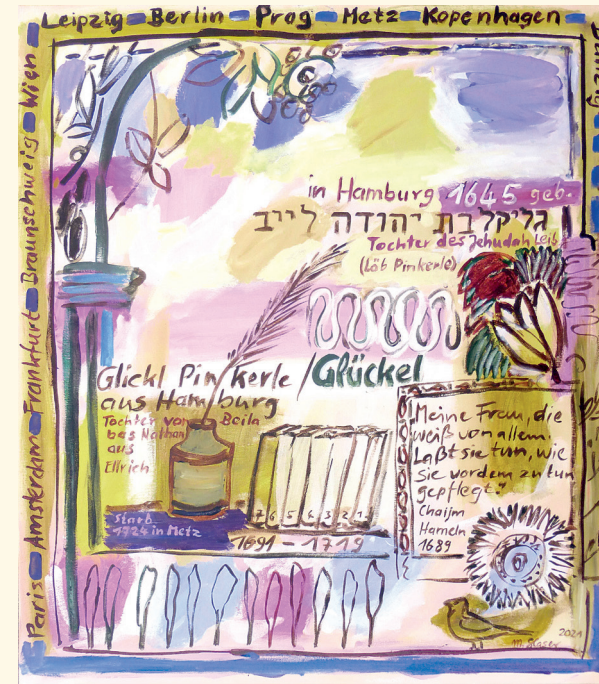 Leipzig Berlin Prag Metz Kopenhagen
Paris Amsterdam Frankfurt Braunschweig Wien
in Hamburg 1645 geb.
גליקלבת יהודה לייב
Tochter des Jehudah Leib
(Löb Pinkerle)
Glickl Pinkerle / Glückel
aus Hamburg
Tochter von Beila
bas Nathan
aus
Ellrich
Starb
1724 in Metz
7 6 5 4 3 2 1
1691 - 1719
"Meine Frau, die
weiß von allem.
Laßt sie tun, wie
sie vordem zu tun
gepflegt."
Chaijm
Hameln
1689
2021